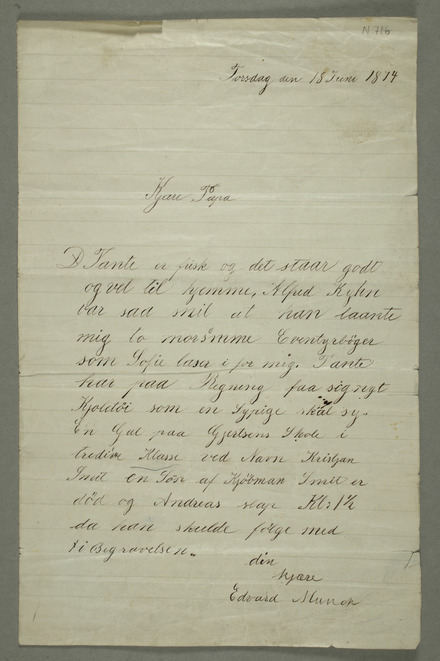 N 716
Torsdag den 18 Juni 1874
Kjære Papa
Tante er frisk og det staar godt
og vel til hjemme, Alfred
var saa snil at han laante
mig to morsomme Eventyrbøger
som Sofie læser i for mig. Tante
har paa Regning faa sig nyt
Kjoletøi som en Sypige skal sy.
En Gut paa Gjertsens Skole i
tredive Klasse ved Navn Kristjan
Smit en Søn af Kjøbman Smit er
død og Andreas slap Kl: 1½
da han skulde følge med
til Begravelsen.
din
kjære
Edvard Munch